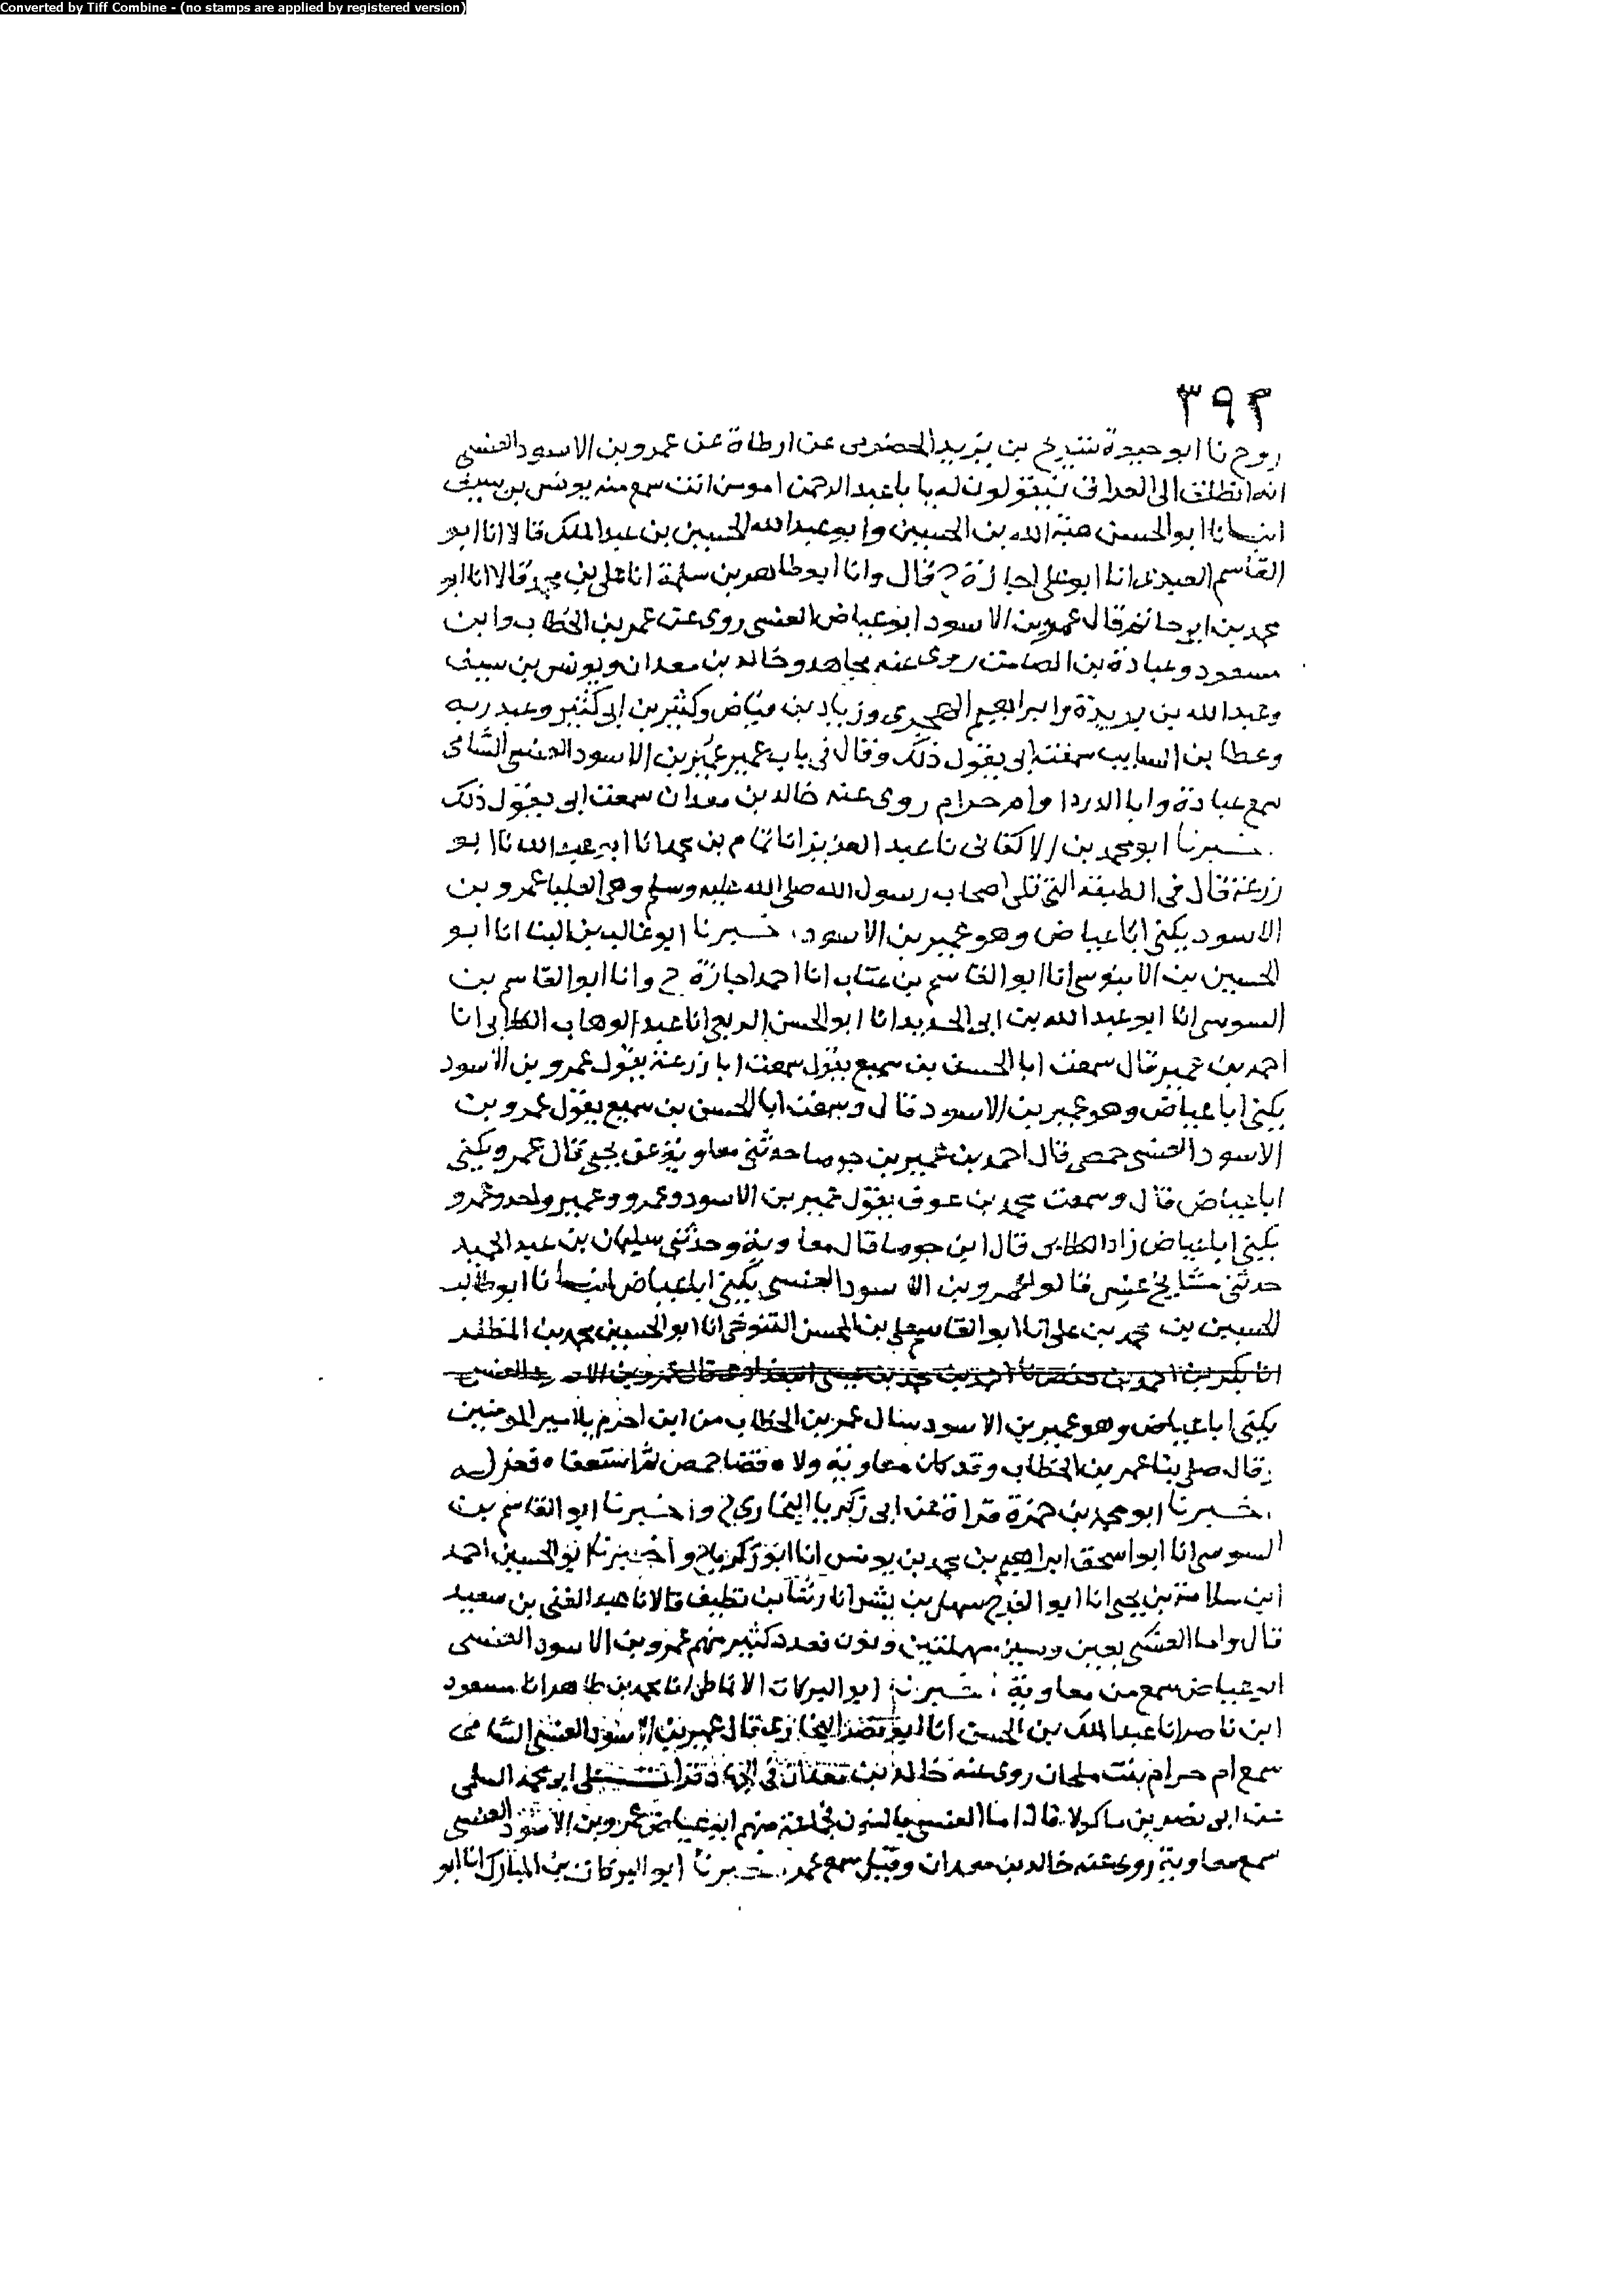 Converted by Tiff Combine - (no stamps are applied by registered version)
٣٩٣
روح نا ابو حيوة شريح بن يزيد الحضرمى عن ارطاة عن عمرو بن الاسود العنسى
انه انطلق الى العراق فيقولون له يا با عبد الرحمن امومن انت سمع منه يونس بن سيف
انبانا ابو الحسن هبة الله بن الحسن وابو عبد الله الحسين بن عبد الملك قالا انا ابو
القاسم العبدى انا ابو على اجازة ح قال وانا ابو طاهر بن سلمة انا على بن محمد قالا انا ابو
محمد بن ابى حاتم قال عمرو بن الاسود ابو عياض العنسى روى عن عمر بن الخطاب وابن
مسعود وعبادة بن الصامت روى عنه مجاهد وخالد بن معدان ويونس بن سيف
وعبد الله بن بريدة وابراهيم الهجرى وزياد بن فياض وكثير بن ابى كثير وعبد ربه
وعطا بن السايب سمعت ابى يقول ذلك وقال فى باب عمير عمير بن الاسود العنسى الشامى
سمع عبادة وابا الدردا وام حرام روى عنه خالد بن معدان سمعت ابى يقول ذلك
خبرنا ابو محمد بن الاكفانى نا عبد العزيز انا تمام بن محمد انا ابو عبد الله نا ابو
زرعة قال فى الطبقة التى تلى اصحاب رسول الله صلى الله عليه وسلم وهى العليا عمرو بن
الاسود يكنى ابا عياض وهو عمير بن الاسود خبرنا ابو غالب بن البنا انا ابو
الحسين بن الابنوسى انا ابو القاسم بن عتاب انا احمد اجازة ح وانا ابو القاسم بن
السوسى انا ابو عبد الله بن ابى الحديد انا ابو الحسن الربعى انا عبد الوهاب الكلابى انا
احمد بن عمير قال سمعت ابا الحسن بن سميع يقول سمعت ابا زرعة يقول عمرو بن الاسود
يكنى ابا عياض وهو عمير بن الاسود قال وسمعت ابا الحسن بن سميع يقول عمرو بن
الاسود العنسى حمصى قال احمد بن عمير بن جوصا حدثنى معاوية عن يحيى قال عمرو يكنى
ابا عياض قال وسمعت محمد بن عوف يقول عمير بن الاسود وعمرو وعمير واحد وعمرو
يكنى ابا عياض زاد الكلابى قال ابن جوصا قال معاوية وحدثنى سليمان بن عبد الحميد
حدثنى مشايخ عنس قالوا عمرو بن الاسود العنسى يكنى ابا عياض انبانا ابو طالب
الحسين بن محمد بن على انا ابو القاسم على بن المحسن التنوخى انا ابو الحسين محمد بن المظفر
انا بكر بن احمد بن حفص نا احمد بن محمد بن عيسى البغدادى قال عمرو بن الاسود العنسى
يكنى ابا عياض وهو عمير بن الاسود سال عمر بن الخطاب من اين احرم يا امير المومنين
قال صلى بنا عمر بن الخطاب وقد كان معاوية ولاه قضا حمص ثم استعفاه فعزله
خبرنا ابو محمد بن حمزة قراة عن ابى زكريا البخارى ح واخبرنا ابو القاسم بن
السوسى انا ابو اسحق ابراهيم بن محمد بن يونس انا ابو زكريا ح واخبرنا ابو الحسين احمد
ابن سلامة بن يحيى انا ابو الفرج سهل بن بشر انا رشا بن نظيف قالا نا عبد الغنى بن سعيد
قال واما العنسى بعين وسين مهملتين ونون فعدد كثير منهم عمرو بن الاسود العنسى
ابو عياض سمع من معاوية خبرنا ابو البركات الانماطى انا محمد بن طاهر انا مسعود
ابن ناصر انا عبد الملك بن الحسن انا ابو نصر البخارى قال عمير بن الاسود العنسى الشامى
سمع ام حرام بنت ملحان روى عنه خالد بن معدان فى الجهاد قرات على ابى محمد السلمى
عن ابى نصر بن ماكولا قال اما العنسى بالنون فجماعة منهم ابو عياض عمرو بن الاسود العنسى
سمع معاوية روى عنه خالد بن معدان وقيل سمع عمر خبرنا ابو البركات بن المبارك انا ابو